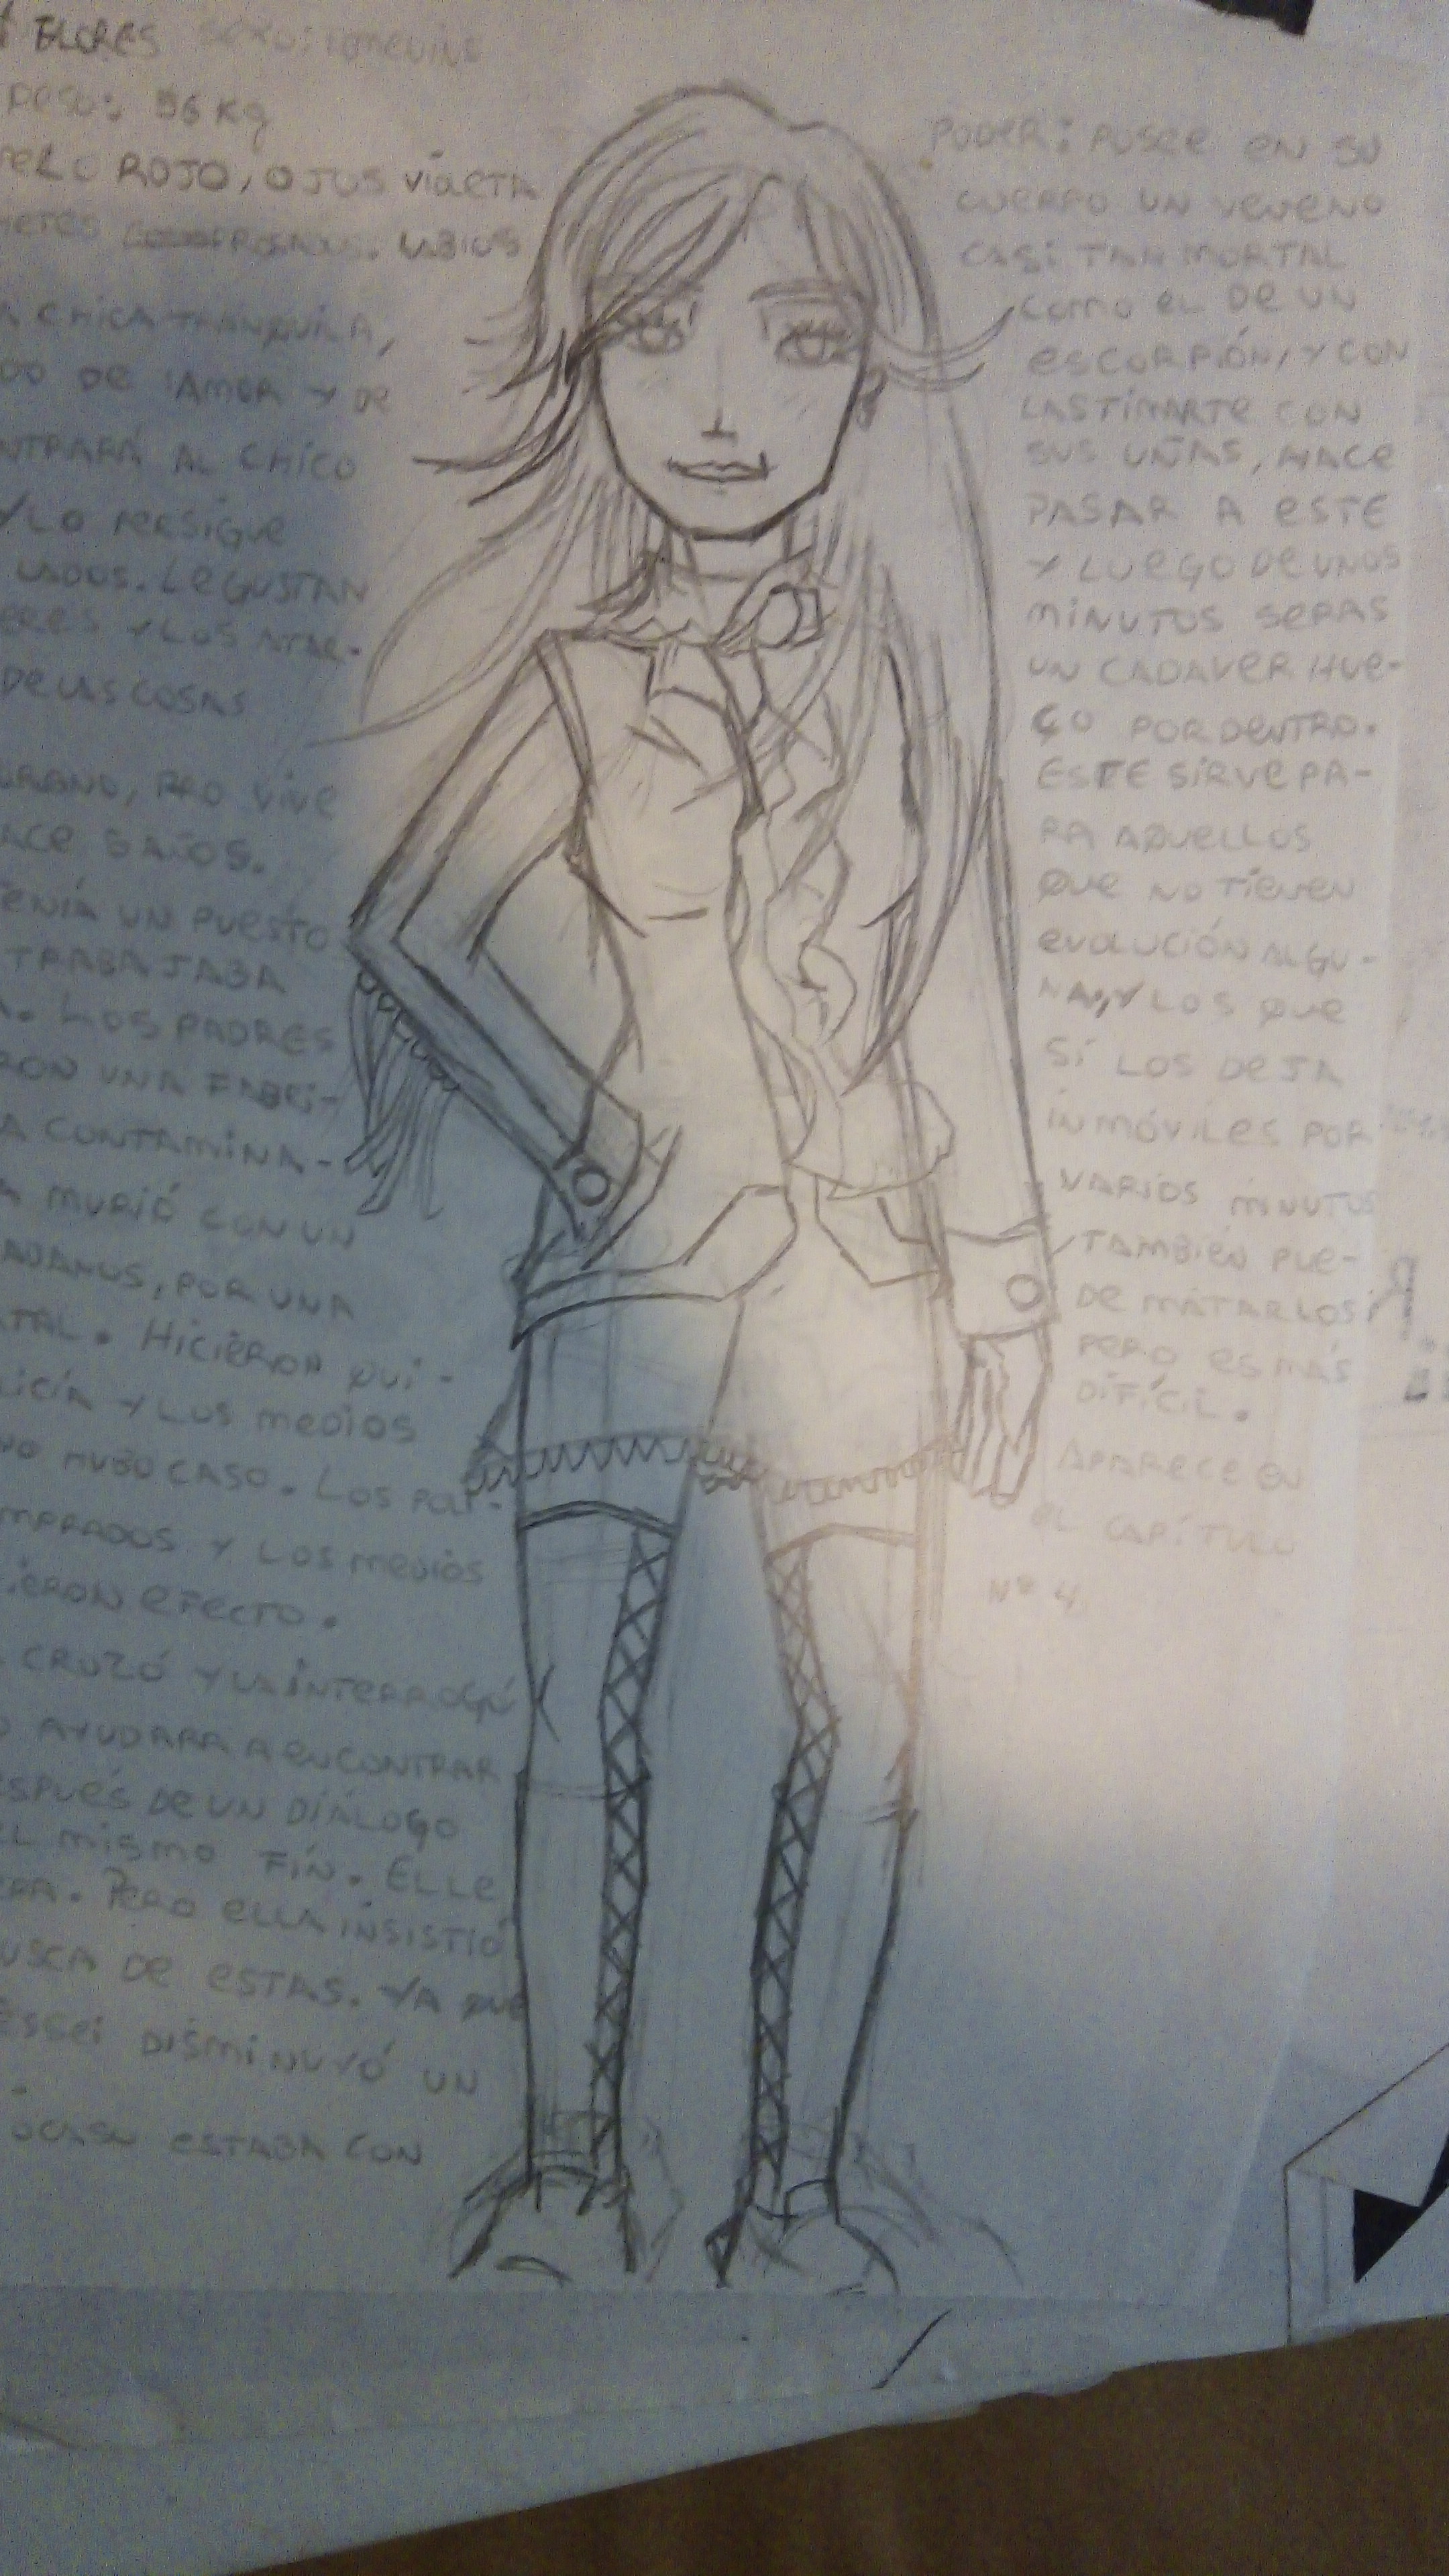 FLORES sexo: femenino
peso: 56 Kg
pelo ROJO, OJOS VIOLETA
ROSADOS. LABIOS
CHICA TRANQUILA,
DE AMOR Y DE
ENTRARÁ AL CHICO
Y LO PERSIGUE
LADOS. Le GUSTAN
Y LOS ATAR-
DE LAS COSAS
URBANO, PERO VIVE
HACE 5 AÑOS.
TENÍA UN PUESTO
TRABAJABA
. LOS PADRES
RON UNA FABRI-
A CONTAMINA-
A MURIÓ CON UN
DADANOS, POR UNA
TAL. HICIERON QUI-
LICÍA Y LOS MEDIOS
NO HUBO CASO. LOS POLI-
MPRADOS Y LOS MEDIOS
CIERON EFECTO.
CRUZÓ Y LA INTERROGÓ
O AYUDARA A ENCONTRAR
ESPUÉS DE UN DIÁLOGO
EL MISMO FÍN. ELLE
ERA. PERO ELLA INSISTIÓ
USCA DE ESTAS. YA QUE
ESSEI DISMINUYÓ UN
OCASO ESTABA CON
PODER: POSEE EN SU
CUERPO UN VENENO
CASI TAN MORTAL
COMO EL DE UN
ESCORPIÓN, Y CON
LASTIMARTE CON
SUS UÑAS, HACE
PASAR A ESTE
Y LUEGO DE UNOS
MINUTOS SERAS
UN CADAVER HUE-
CO POR DENTRO.
ESTE SIRVE PA-
RA AQUELLOS
QUE NO TIENEN
EVOLUCIÓN ALGU-
NA, Y LOS QUE
SÍ LOS DEJA
INMÓVILES POR
VARIOS MINUTOS
TAMBIÉN PUE-
DE MATARLOS
PERO ES MÁS
DIFÍCIL.
APARECE EN
EL CAPÍTULO
Nº 4